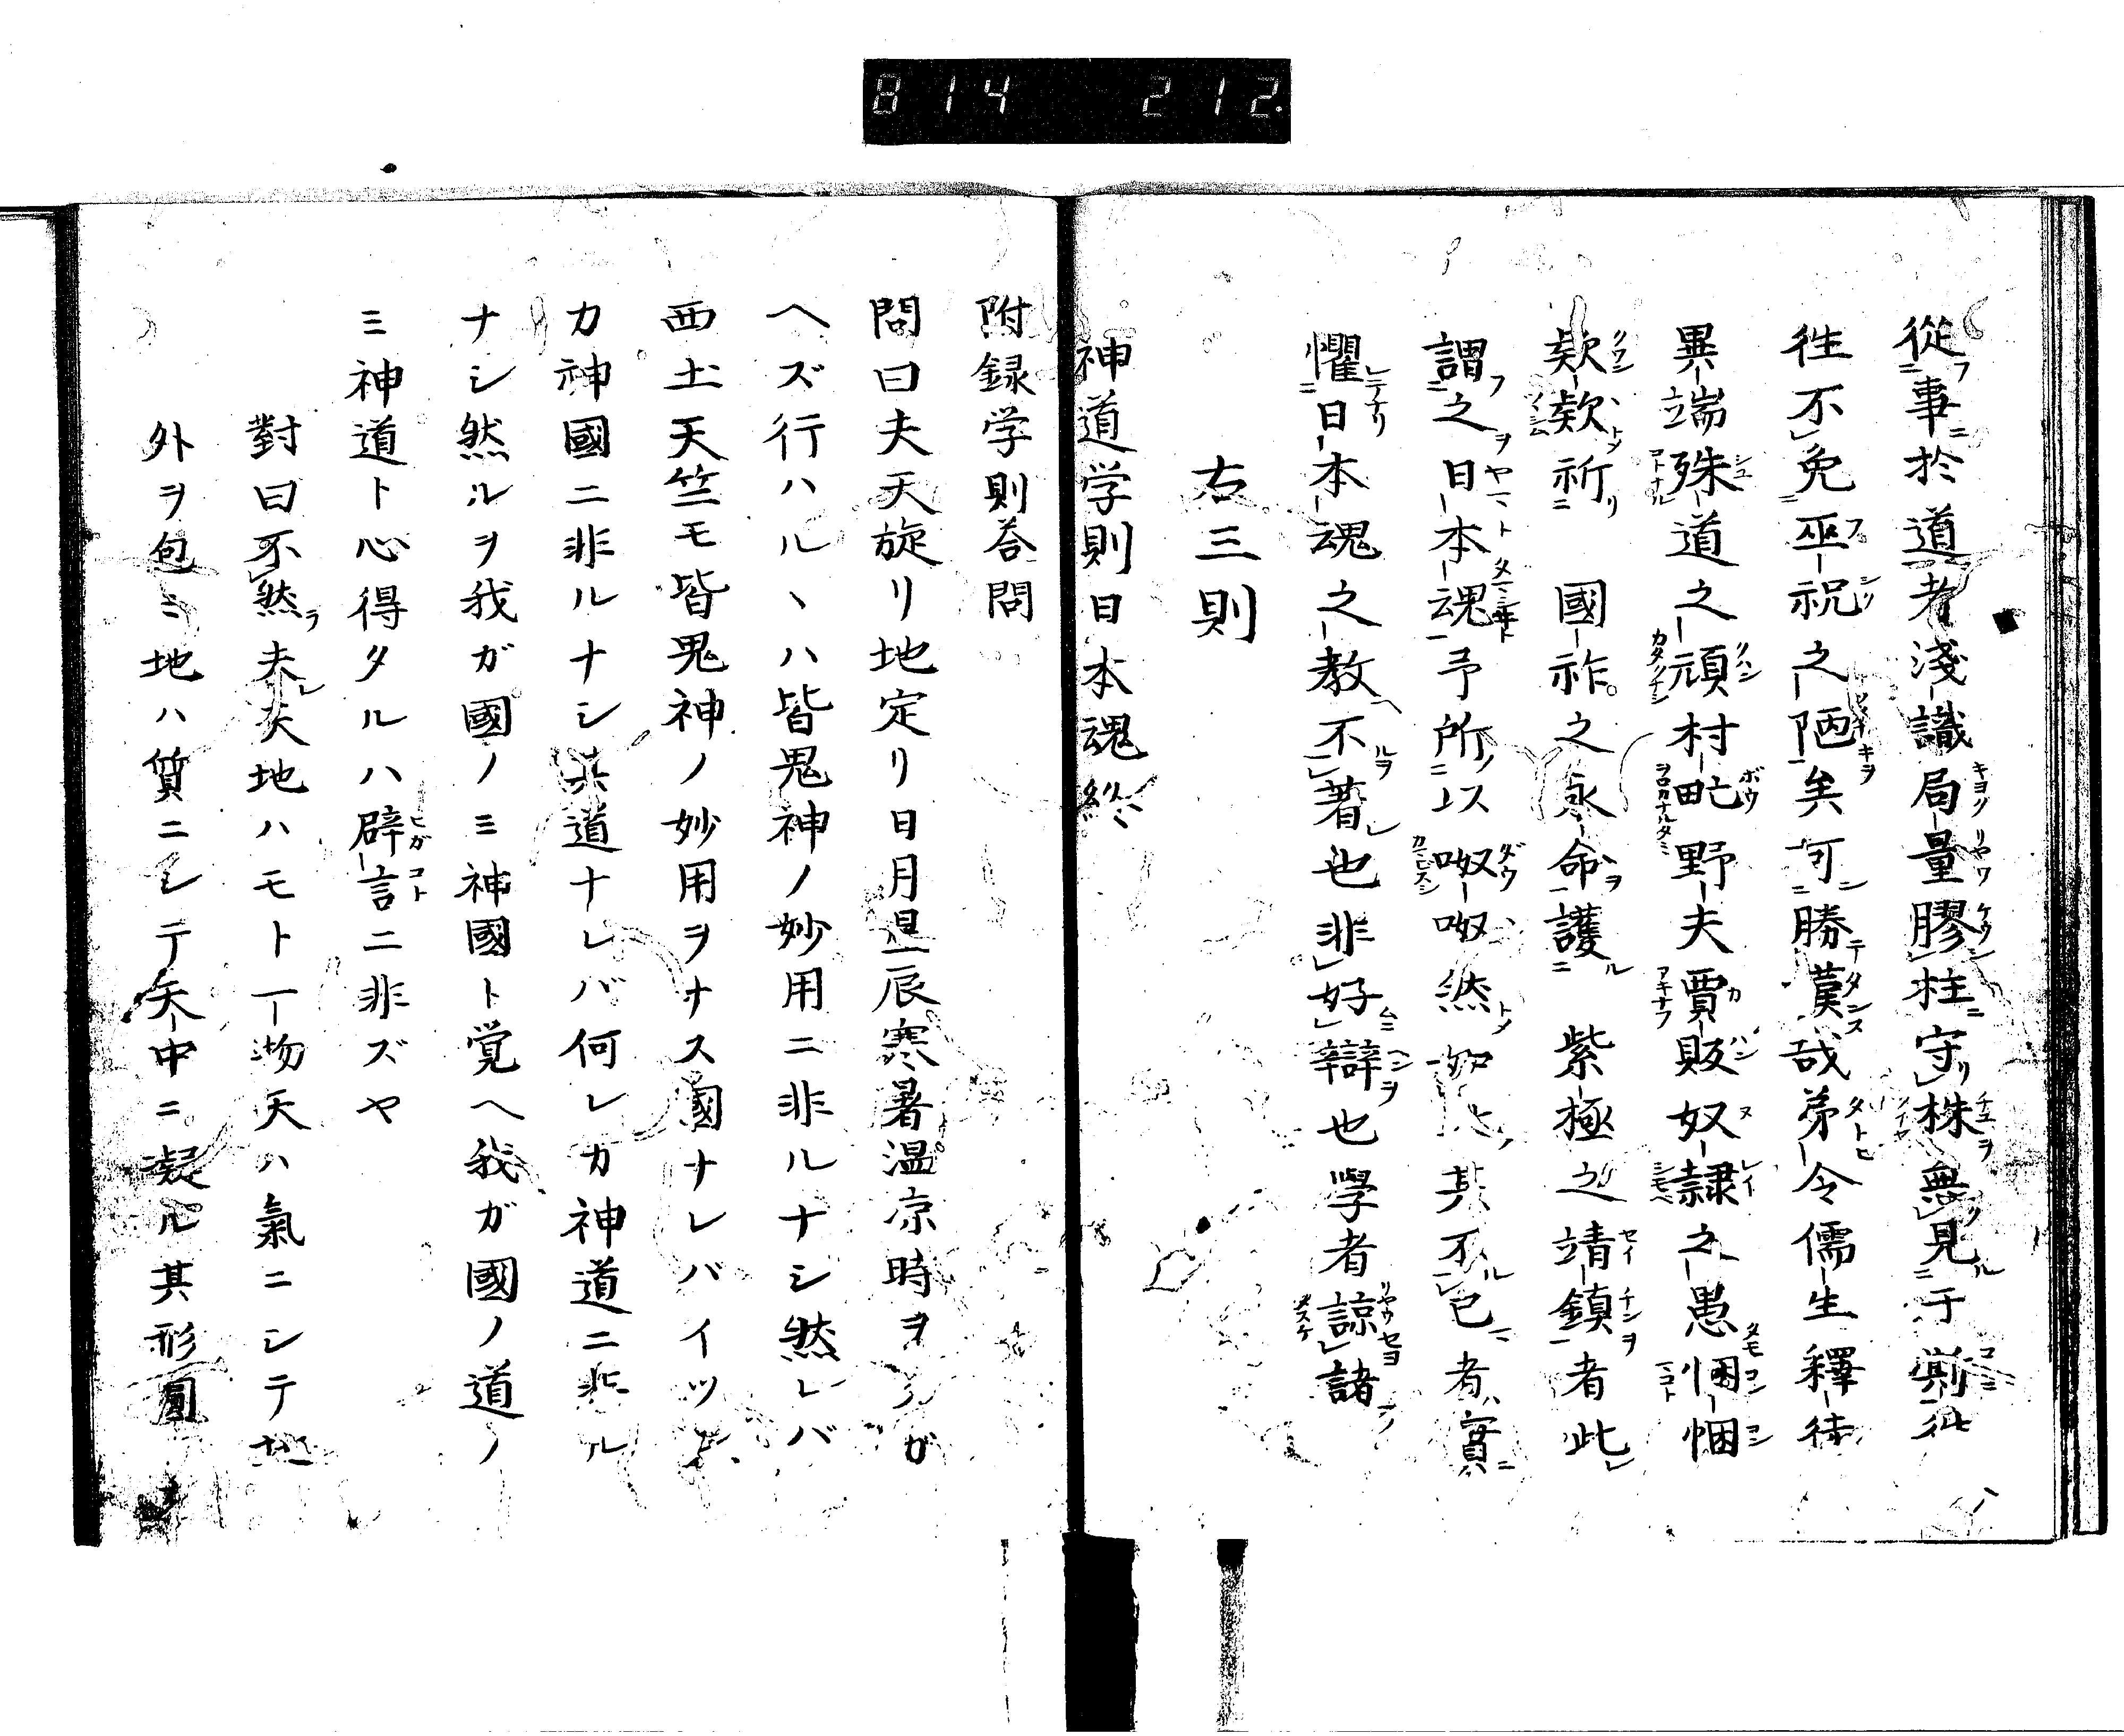 814 212
從事於道者淺識局量膠柱守株無見于斯徃
徃不免巫祝之陋矣可勝嘆哉苐令儒生釋徒
異端殊道之頑村甿野夫賈販奴隷之愚悃悃
欵欵祈 國祚之永命護 紫極之靖鎮者此
謂之日本魂予所以呶呶然 其不已者實
懼日本魂之教不著也非好辯也學者諒諸
右三則
神道学則日本魂終
附録学則荅問
問曰夫天旋リ地定リ日月星辰寒暑温凉時ヲタガ
ヘズ行ハルヽハ皆鬼神ノ妙用ニ非ルナシ然レバ
西土天竺モ皆鬼神ノ妙用ヲナス國ナレバイツレ
カ神國ニ非ルナシ其道ナレバ何レカ神道ニ非ル
ナシ然ルヲ我ガ國ノミ神國ト覚ヘ我ガ國ノ道ノ
ミ神道ト心得タルハ辟言ニ非ズヤ
對曰不然夫レ天地ハモト一物天ハ氣ニシテ地
外ヲ包ミ地ハ質ニシテ天中ニ凝ル其形圓